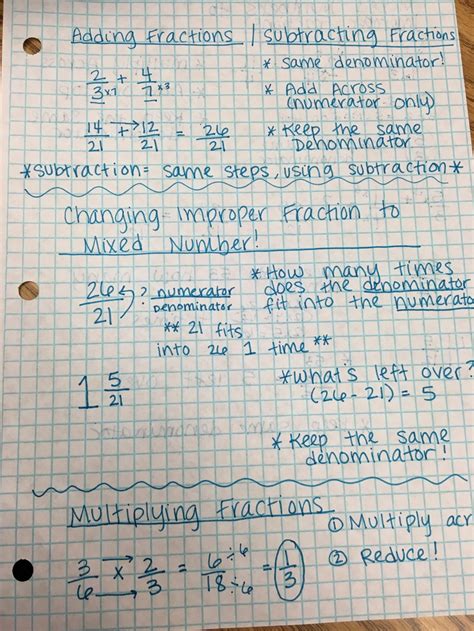 Adding Fractions / Subtracting Fractions
2/3 ×7 + 4/7 ×3
* same denominator!
* Add Across
(numerator only)
14/21 + 12/21 = 26/21
* Keep the same
Denominator
*subtraction= same steps, using subtraction*
Changing Improper Fraction to
Mixed Number!
26/21 ? numerator
denominator
* How many times
does the denominator
fit into the numerato
** 21 fits
into 26 1 time **
1 5/21
*what's left over?
(26-21) = 5
* Keep the same
denominator!
Multiplying Fractions
① Multiply acr
② Reduce!
3/6 × 2/3 = 6/18 ÷6 ÷6 = 1/3